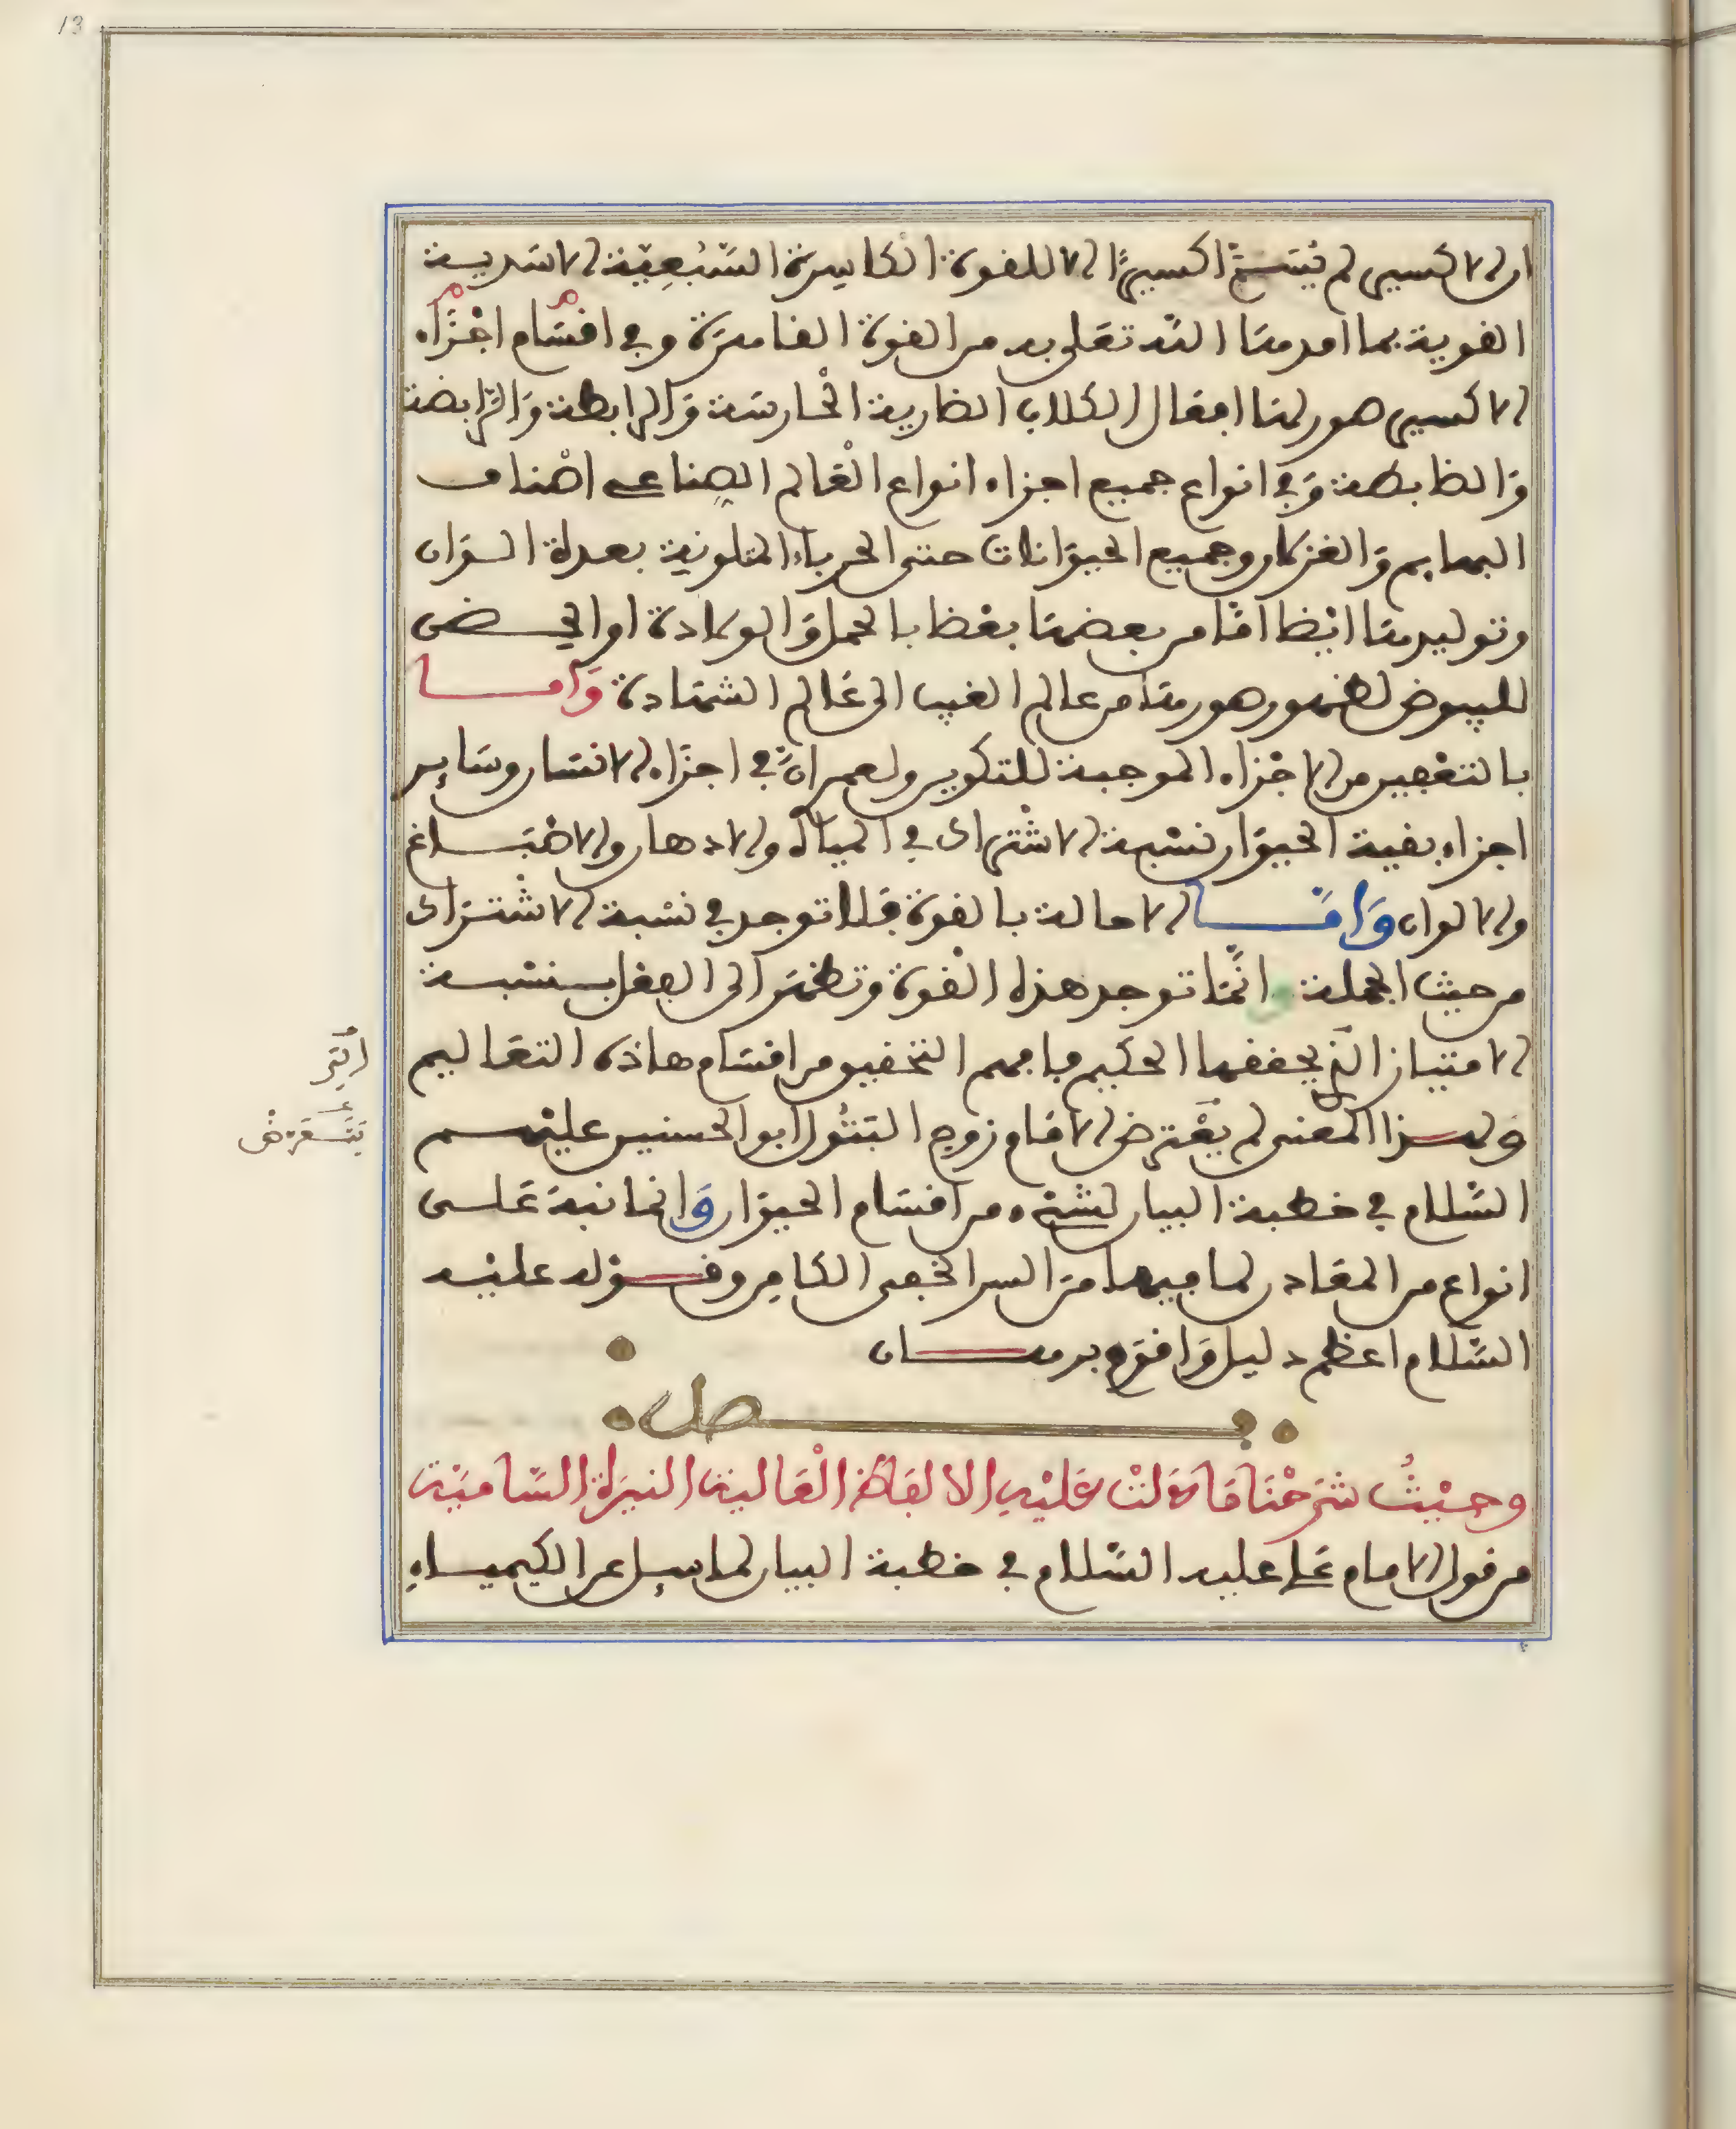 13
ان الاكسير لم يسم اكسيرا الا للقوة الكاسرة السبعية الاسدية
القوية بما امدها الله تعلى به من القوة الغامزة وفي اقسام اجزاء
الاكسير صور لها افعال الكلاب الضارية الحارسة والرابطة والرابضة
والضابطة وفي انواع جميع اجزاء انواع العالم الصناعي اصناف
البهايم والغزلان وجميع الحيوانات حتى الحرباء المتلونة بعدة الوان
وتوليدها ايضا اما من بعضها بعضا بالحمل والولادة او الحضن
للبيوض لظهور صورها من عالم الغيب الى عالم الشهادة واما
بالتعفين من الاجزاء الموجبة للتكوين ولعمران في اجزاء الانسان وساير
اجزاء بقية الحيوان نسبة الاشتراك في المياه والادهان والاصباغ
والالوان واما الاحالة بالقوة فلا توجد في نسبة الاشتراك
من حيث الجملة وانما توجد هذه القوة وتظهر الى الفعل بنسبة
الامتياز التي يحققها الحكيم فافهم التحقيق من اقسام هاذه التعاليم
ولهذا المعنى لم يعترض الامام زوج البتول ابو الحسنين عليهم
السلام في خطبة البيان لشيء من اقسام الحيوان وانما نبه على
انواع من المعادن لما فيها من السر الخفي الكامن وقوله عليه
السلام اعظم دليل واقوم برهان
فصل
وحيث شرحنا ما دلت عليه الالفاظ العالية النيرة السامية
من قول الامام علي عليه السلام في خطبة البيان لما سيل عن الكيمياء
التي
يتعرض